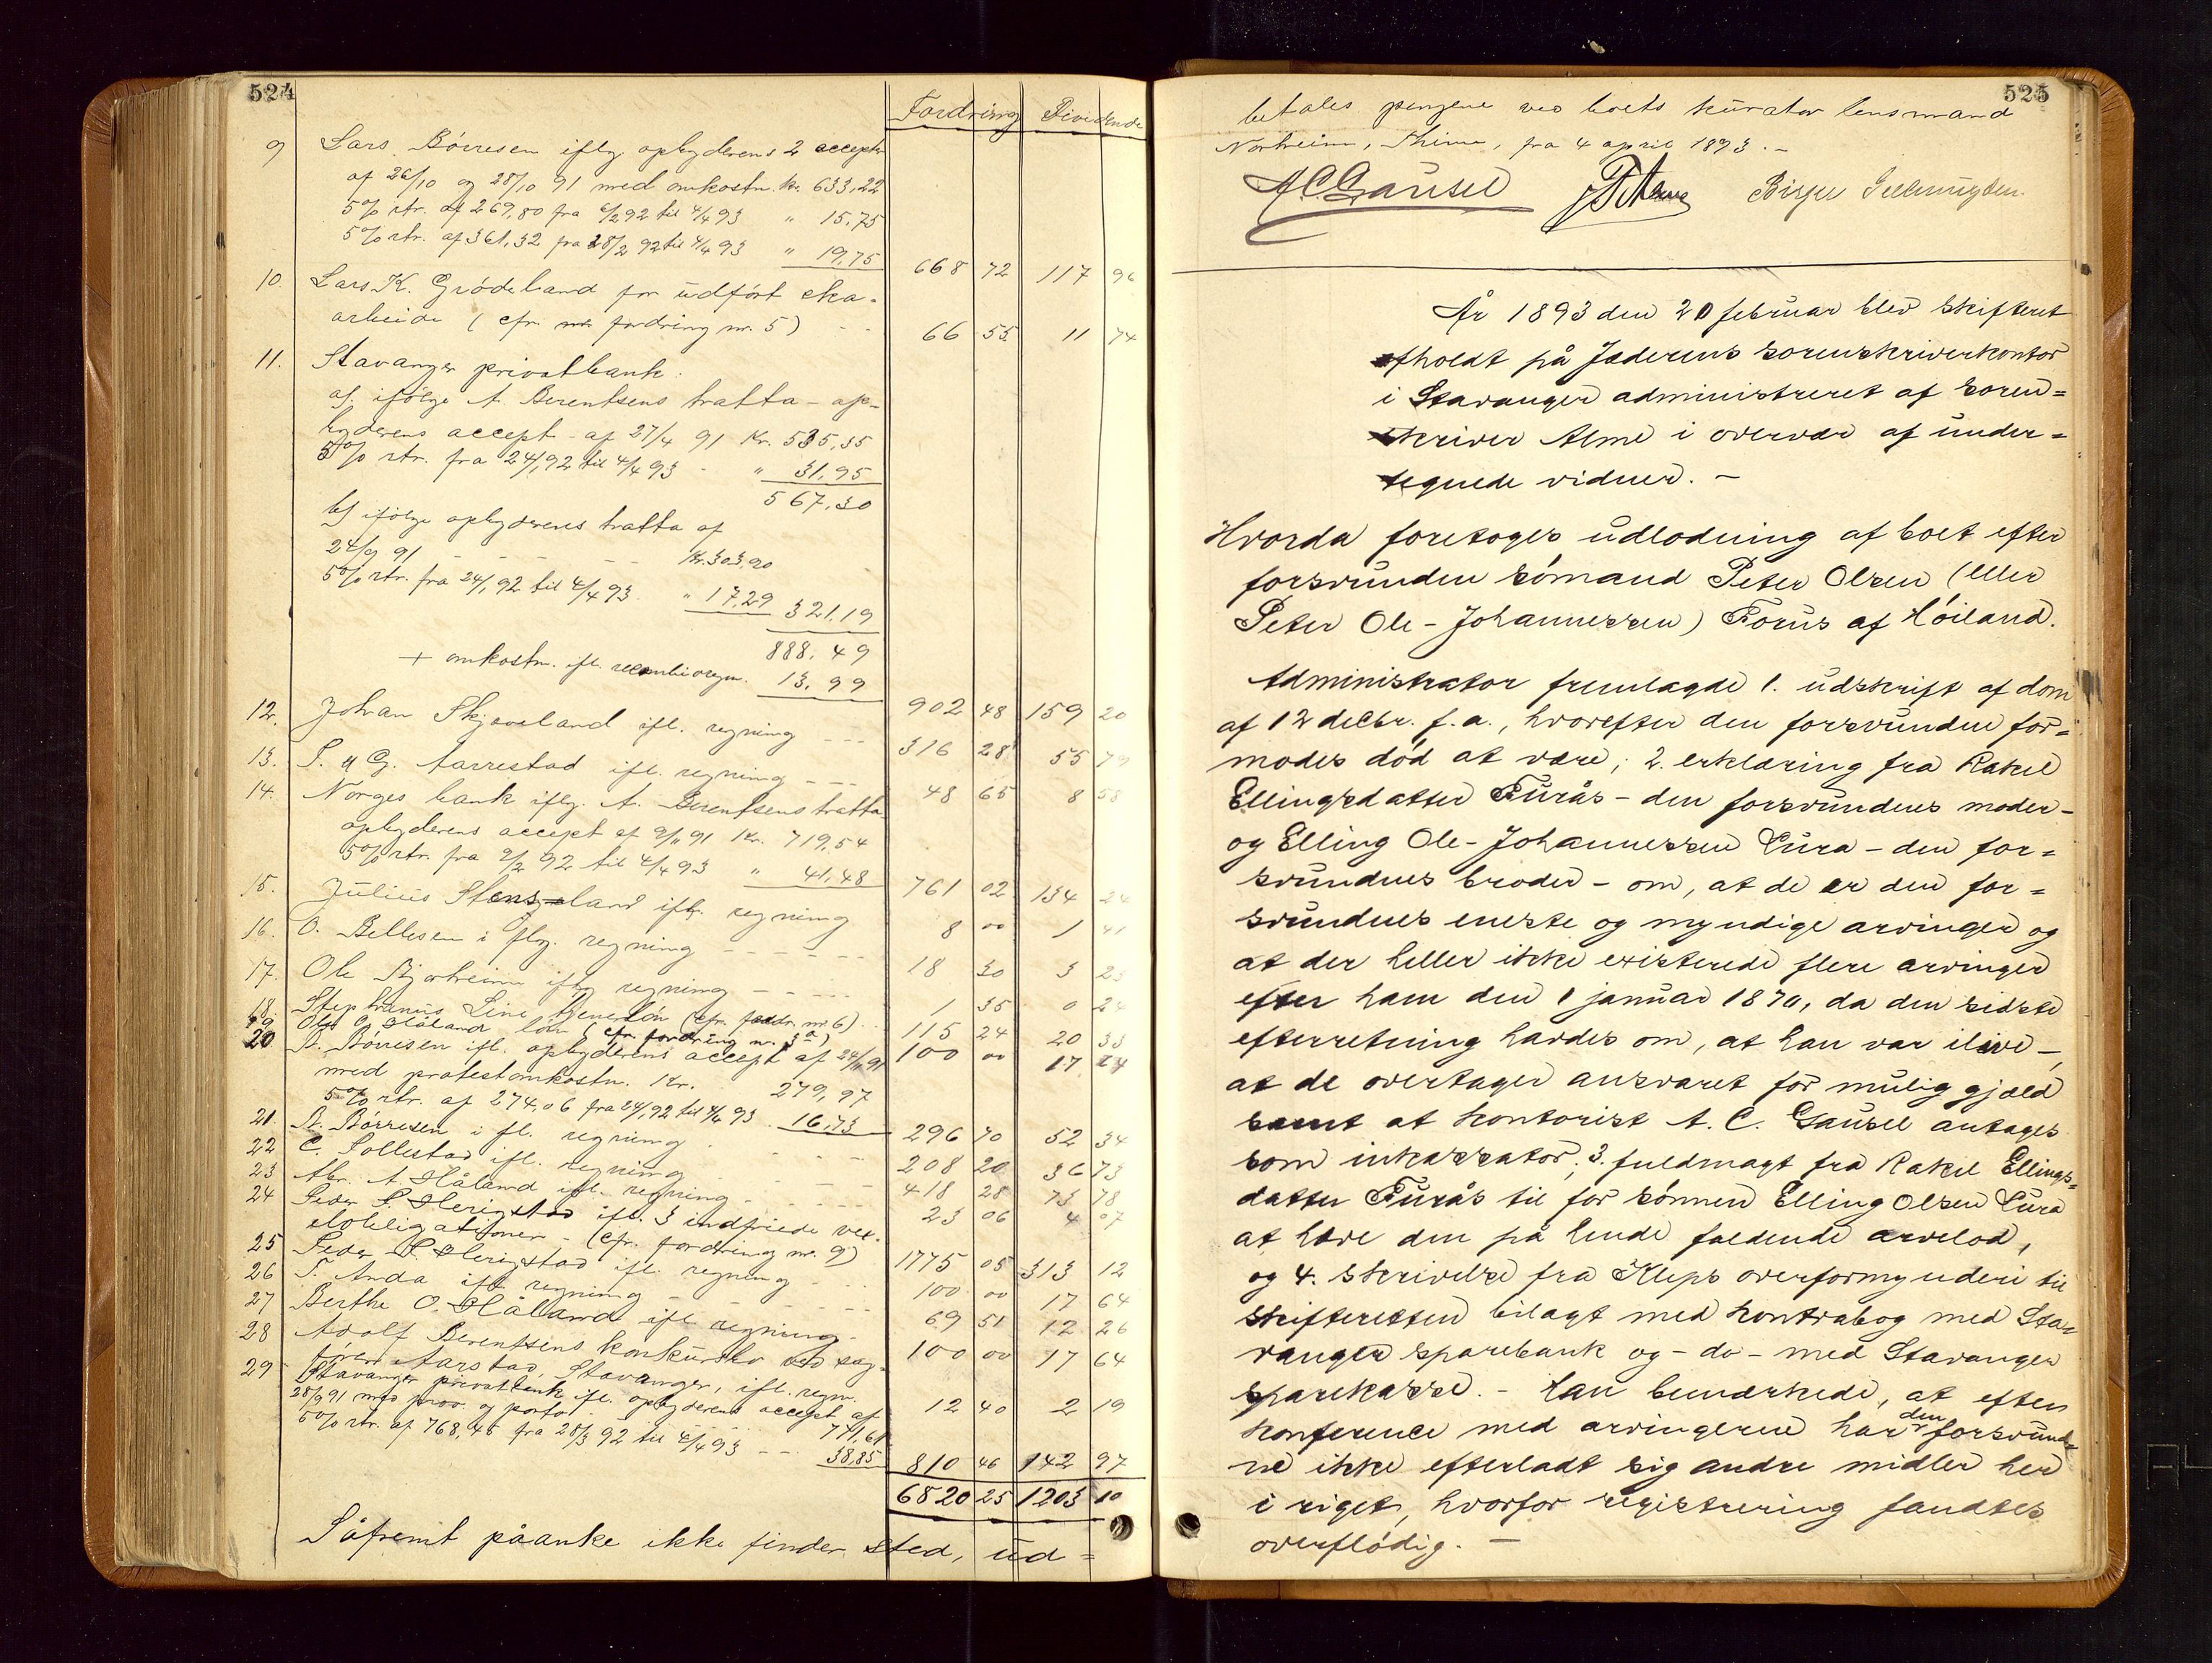 524
Fordring Dividende
9 Lars Börresen iflg. opbyderens 2 accepter
af 26/10 og 28/10 91 med omkostn. kr. 633,22
5% rtr. af 269,80 fra 6/2 92 til 4/4 93 " 15,75
5% rtr. af 361,32 fra 28/2 92 til 4/4 93 " 19,75 668 72 117 96
10. Lars K. Grödeland for udfört sko-
arbeide (cfr. fordring nr. 5) - - 66 55 11 74
11. Stavanger privatbank.
a). ifölge A. Berentsens tratta - op-
byderens accept - af 27/4 91 Kr. 535,35
5% rtr. fra 24/1 92 til 4/4 93 - " 31,95
567,30
b) ifölge opbyderens tratta af
24/9 91 - - - - - Kr. 303,90
5% rtr. fra 24/1 92 til 4/4 93 " 17,29 321,19
888,49
+ omkostn. ifl. recambioregn. 13,99 902 48 159 20
12. Johan Skjæveland ifl. regning - - - 316 28 55 79
13. S. & G. Aarrestad ifl. regning - - - 48 65 8 58
14. Norges bank iflg. A. Berentsens tratta
opbyderens accept af 9/11 91 Kr. 719,54
5% rtr. fra 9/2 92 til 4/4 93 " 41,48 761 02 134 24
15. Julius Stensland iflg. regning 8 00 1 41
16. O. Bellesen iflg. regning - - - - - - 18 30 3 23
17. Ole Bjorheim iflg. regning - - - - - 1 35 0 24
18. Stephanus Line tjenelön (cfr. fordr. nr. 6) 115 24 20 33
19 Ole O. Håland lön (cfr. fordring nr. 3 a) 100 00 17 64
20 B. Börresen ifl. opbyderens accept af 24/11 91
med protestomkostn. Kr. 279,97
5% rtr. af 274,06 fra 24/1 92 til 4/4 93 16,73 296 70 52 34
21 B. Börresen ifl. regning - - - - 208 20 36 73
22 C. Sollestad ifl. regning - - - - 418 28 73 78
23 Abr. A. Håland ifl. regning - - - - 23 06 4 07
24 Peder S. Herigstad ifl. 3 indfriede vex-
elobligationer - (cfr. fordring nr. 9) 1775 05 313 12
25 Peder S. Herigstad ifl. regning - - 100 00 17 64
26 T. Anda ifl. regning - - - - - - 69 51 12 26
27 Berthe O. Håland ifl. regning - 100 00 17 64
28 Adolf Berentsens konkursbo ved sag-
förer Aarstad, Stavanger, ifl. regn. 12 40 2 19
29 Stavanger privatbank ifl. opbyderens accept af
28/9 91 med prov. og porto - 771,61
5% rtr. af 768,45 fra 28/3 92 til 4/4 93 - - 38,85 810 46 142 97
6820 25 1203 10
Såfremt påanke ikke finder sted, ud=
525
betales pengene ved boets kurator lensmand
Norheim, Thime, fra 4 april 1893. -
A C Gausel
År 1893 den 20 februar blev skifteret
afholdt på Jæderens sorenskriverkontor
i Stavanger administreret af soren=
skriver Alme i overvær af under=
tegnede vidner. -
Hvorda foretoges udlodning af boet efter
forsvunden sómand Peter Olsen (eller
Peter Ole-Johannessen) Forus af Hóiland.
Administrator fremlagde 1. udskrift af dom
af 12 decbr. f.a., hvorefter den forsvundne for=
modes död at være; 2. erklæring fra Rakel
Ellingsdatter Furås - den forsvundnes moder -
og Elling Ole-Johannessen Lura - den for=
svundnes broder - om, at de er den for=
svundnes eneste og myndige arvinger og
at der heller ikke existerede flere arvinger
efter ham den 1 januar 1870, da den sidste
efterretning havdes om, at han var ilive -,
at de overtager ansvaret for mulig gjæld
samt at kontorist A. C. Gausel antages
som inkassator; 3. fuldmagt fra Rakel Ellings=
datter Furås til for sónnen Elling Olsen Lura
at hæve den på hende faldende arvelod,
og 4. skrivelse fra Klepps overformynderi til
skifteretten bilagt med kontrabog med Sta=
vanger sparebank og - do - med Stavanger
sparekasse. - Han bemærkede, at efter
konference med arvingerne har den forsvund=
ne ikke efterladt sig andre midler her
i riget, hvorfor registrering fandtes
overflódig. -